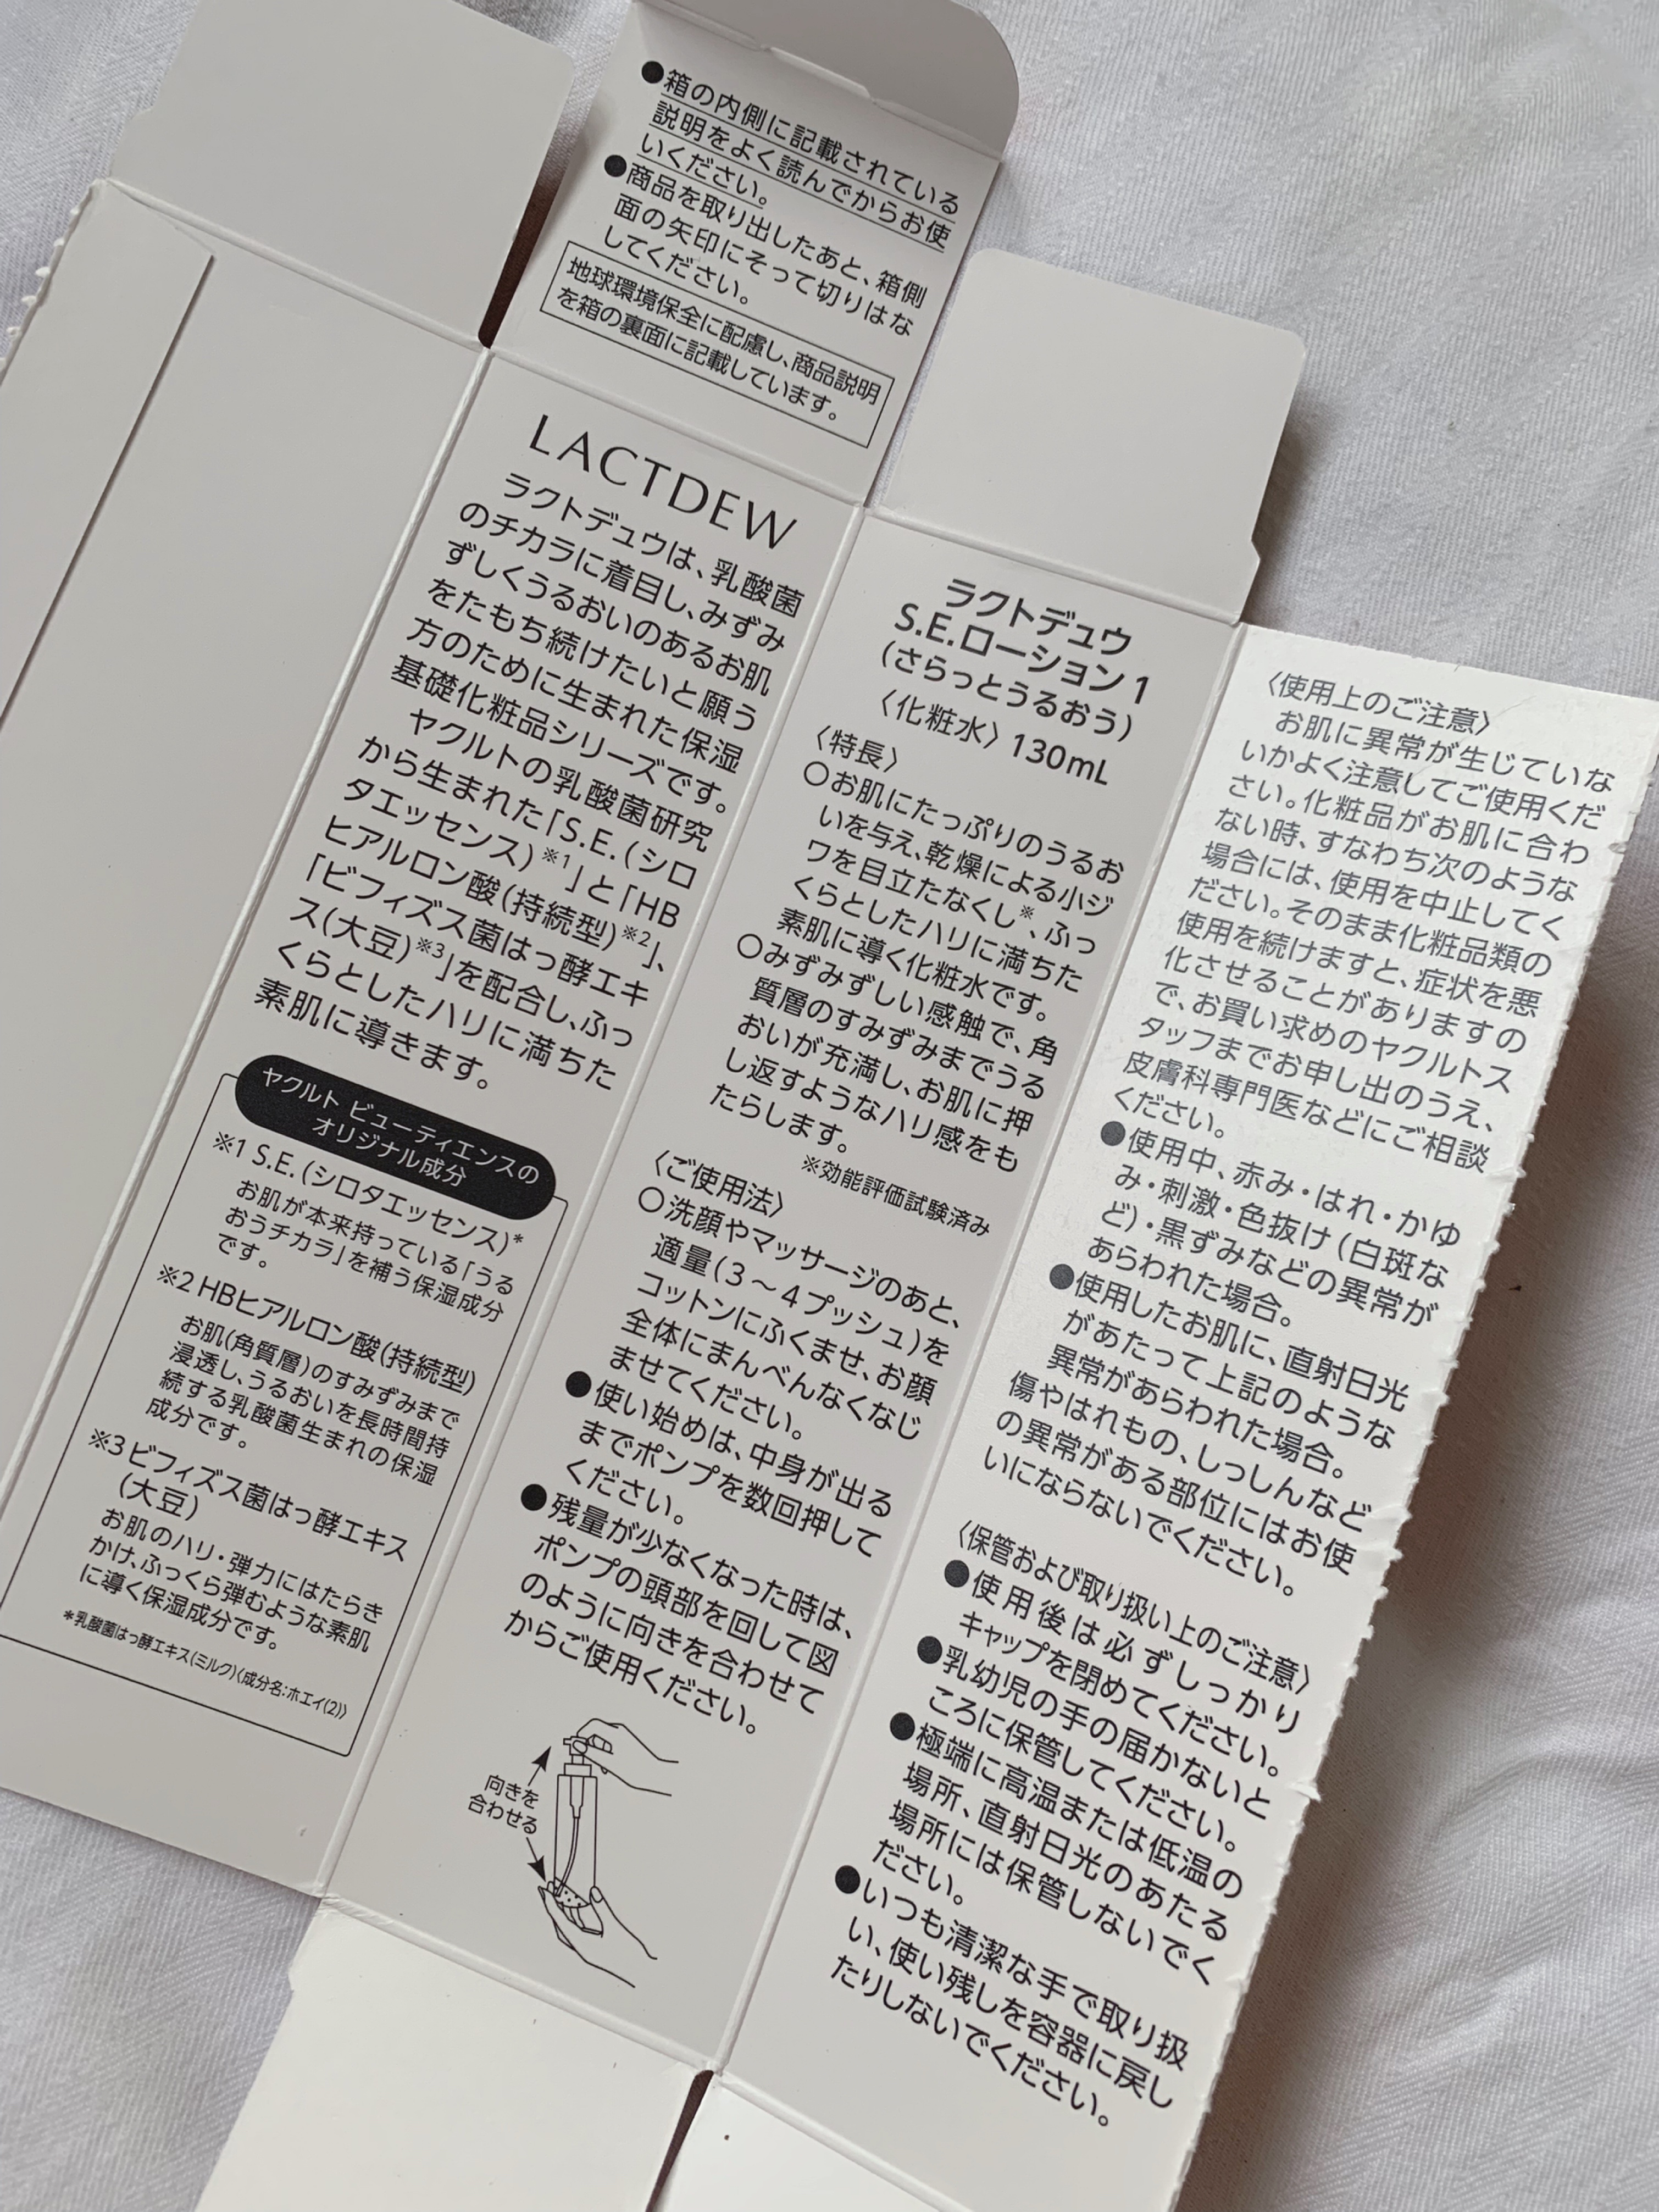 ●箱の内側に記載されている
説明をよく読んでからお使
いください。
●商品を取り出したあと、箱側
面の矢印にそって切りはな
してください。
地球環境保全に配慮し、商品説明
を箱の裏面に記載しています。
LACTDEW
ラクトデュウは、乳酸菌
のチカラに着目し、みずみ
ずしくうるおいのあるお肌
をたもち続けたいと願う
方のために生まれた保湿
基礎化粧品シリーズです。
ヤクルトの乳酸菌研究
から生まれた「S.E.(シロ
タエッセンス)※1」と「HB
ヒアルロン酸(持続型)※2」、
「ビフィズス菌はっ酵エキ
ス(大豆)※3」を配合し、ふっ
くらとしたハリに満ちた
素肌に導きます。
ヤクルト ビューティエンスの
オリジナル成分
※1 S.E.(シロタエッセンス)*
お肌が本来持っている「うる
おうチカラ」を補う保湿成分
です。
※2 HBヒアルロン酸(持続型)
お肌(角質層)のすみずみまで
浸透し、うるおいを長時間持
続する乳酸菌生まれの保湿
成分です。
※3 ビフィズス菌はっ酵エキス
(大豆)
お肌のハリ・弾力にはたらき
かけ、ふっくら弾むような素肌
に導く保湿成分です。
*乳酸菌はっ酵エキス(ミルク)〈成分名:ホエイ(2)〉
ラクトデュウ
S.E.ローション1
(さらっとうるおう)
〈化粧水〉130mL
〈特長〉
○お肌にたっぷりのうるお
いを与え、乾燥による小ジ
ワを目立たなくし※、ふっ
くらとしたハリに満ちた
素肌に導く化粧水です。
○みずみずしい感触で、角
質層のすみずみまでうる
おいが充満し、お肌に押
し返すようなハリ感をも
たらします。
※効能評価試験済み
〈ご使用法〉
○洗顔やマッサージのあと、
適量(3～4プッシュ)を
コットンにふくませ、お顔
全体にまんべんなくなじ
ませてください。
●使い始めは、中身が出る
までポンプを数回押して
ください。
●残量が少なくなった時は、
ポンプの頭部を回して図
のように向きを合わせて
からご使用ください。
向きを
合わせる
〈使用上のご注意〉
お肌に異常が生じていな
いかよく注意してご使用くだ
さい。化粧品がお肌に合わ
ない時、すなわち次のような
場合には、使用を中止してく
ださい。そのまま化粧品類の
使用を続けますと、症状を悪
化させることがありますの
で、お買い求めのヤクルトス
タッフまでお申し出のうえ、
皮膚科専門医などにご相談
ください。
●使用中、赤み・はれ・かゆ
み・刺激・色抜け(白斑な
ど)・黒ずみなどの異常が
あらわれた場合。
●使用したお肌に、直射日光
があたって上記のような
異常があらわれた場合。
傷やはれもの、しっしんなど
の異常がある部位にはお使
いにならないでください。
〈保管および取り扱い上のご注意〉
●使用後は必ずしっかり
キャップを閉めてください。
●乳幼児の手の届かないと
ころに保管してください。
●極端に高温または低温の
場所、直射日光のあたる
場所には保管しないでく
ださい。
●いつも清潔な手で取り扱
い、使い残しを容器に戻し
たりしないでください。